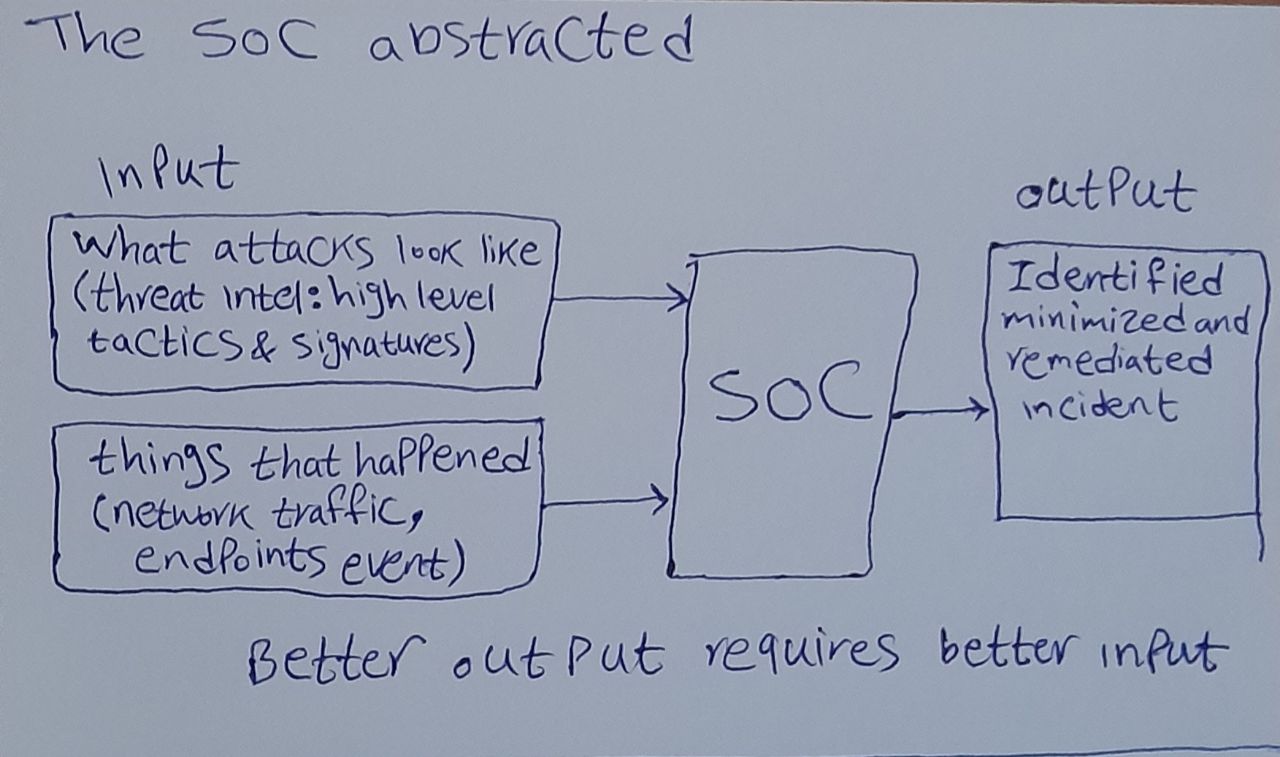 The SOC abstracted
Input
What attacks look like
(threat intel: high level
tactics & signatures)
things that happened
(network traffic,
endpoints event)
SOC
output
Identified
minimized and
remediated
incident
Better output requires better input